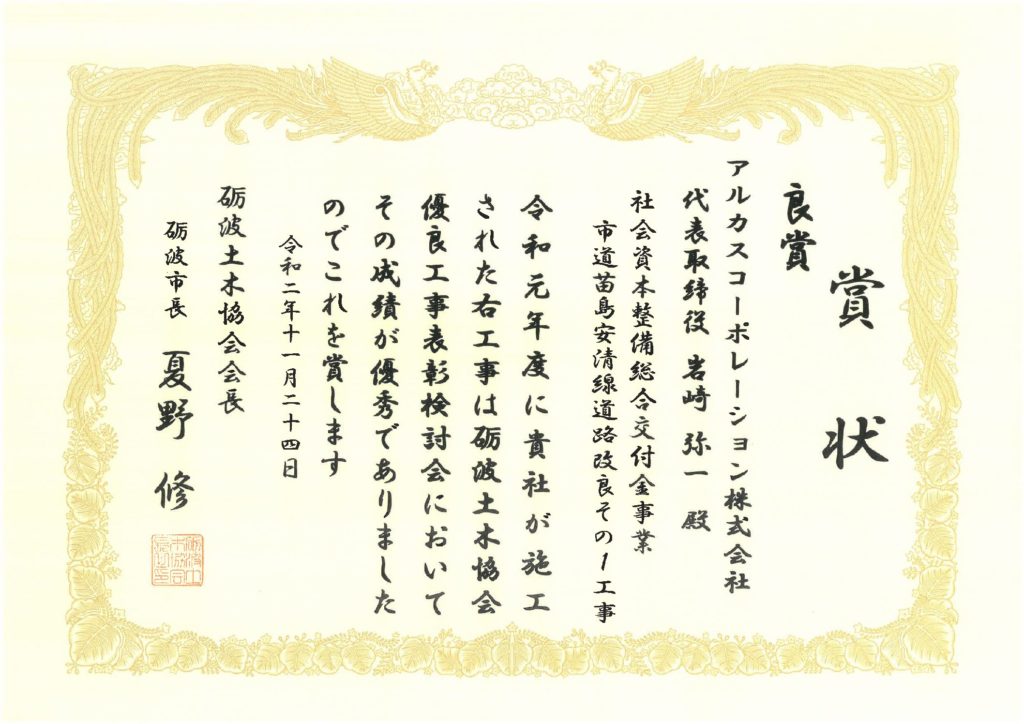 賞状
良賞
アルカスコーポレーション株式会社
代表取締役 岩崎 弥一 殿
社会資本整備総合交付金事業
市道苗島安清線道路改良その1工事
令和元年度に貴社が施工
された右工事は砺波土木協会
優良工事表彰検討会において
その成績が優秀でありました
のでこれを賞します
令和二年十一月二十四日
砺波土木協会会長
砺波市長 夏野 修